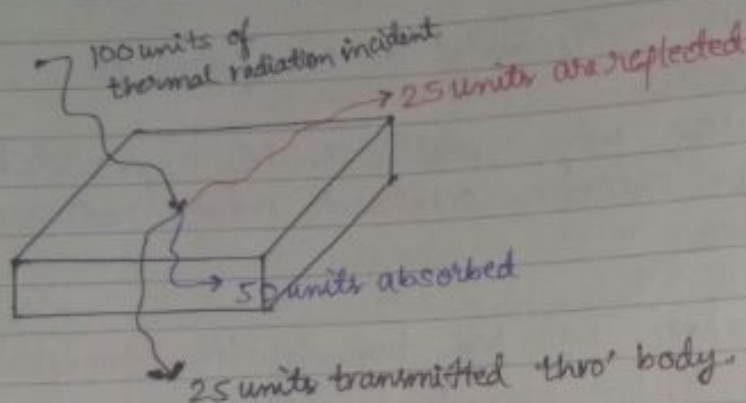 100 units of
thermal radiation incident
25 units are replected
50 units absorbed
25 units transmitted thro' body.